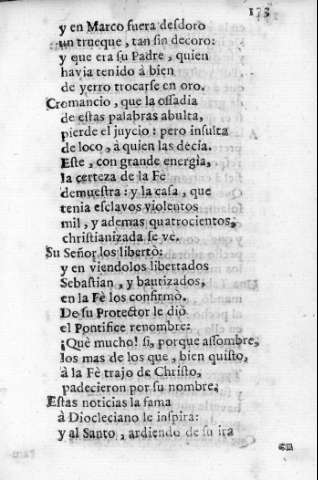 173
y en Marco fuera desdoro
un trueque, tan sin decoro:
y que era su Padre, quien
havia tenido à bien
de yerro trocarse en oro.
Cromancio, que la ossadia
de estas palabras abulta,
pierde el juycio: pero insulta
de loco, à quien las decia.
Este, con grande energia,
la certeza de la Fe
demuestra: y la casa, que
tenia esclavos violentos
mil, y ademas quatrocientos,
christianizada se ve.
Su Señor los libertò:
y en viendolos libertados
Sebastian, y bautizados,
en la Fè los confirmò.
De su Protector le diò
el Pontifice renombre:
¡Què mucho! si, porque assombre,
los mas de los que, bien quisto,
à la Fè trajo de Christo,
padecieron por su nombre.
Estas noticias la fama
à Diocleciano le inspira:
y al Santo, ardiendo de su ira
en